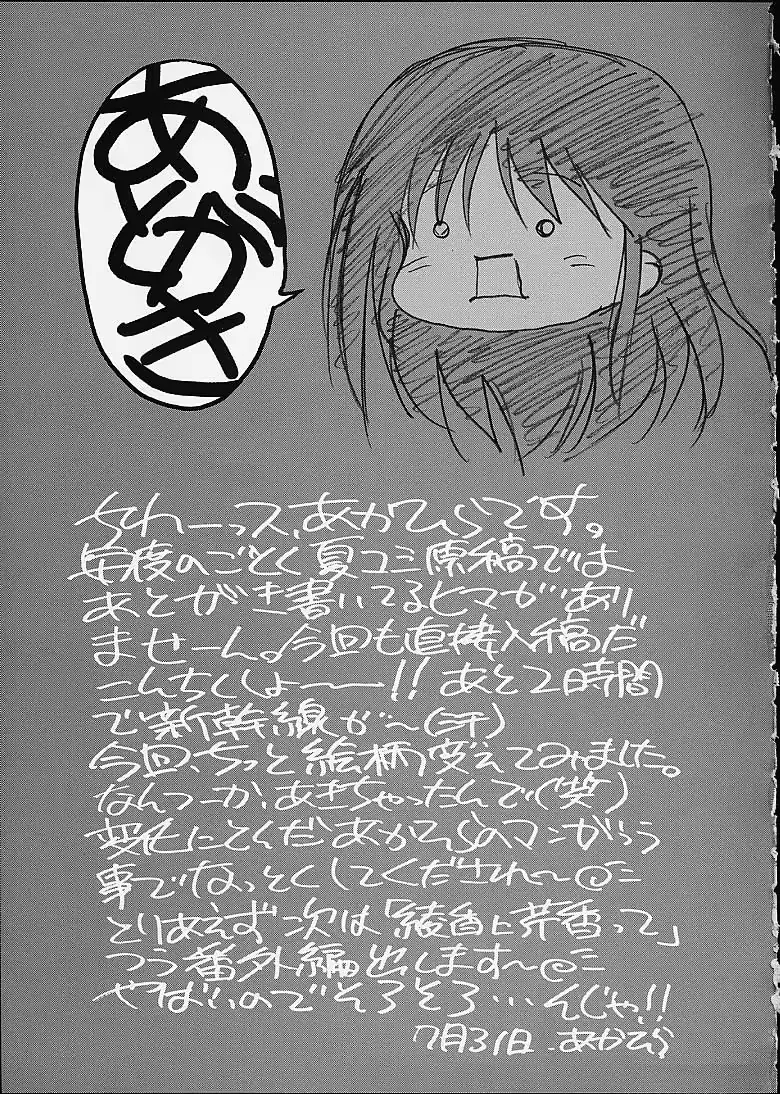 あとがき
ちわーっス、あかひらです。
毎度のごとく夏コミ原稿では
あとがき書いてるヒマがあり
ませーん。今回も直接入稿だ
こんちくしょーーー!! あと2時間
で新幹線が〜(汗)
今回、ちっと絵柄変えてみました。
なんつーか、あきちゃったんで(笑)
変化にとんだあかひらのマンガっつう
事でなっとくしてくだされ〜
とりあえず次は「綾香と芹香って」
つう番外編出します〜
やばいのでそろそろ…んじゃ!!
7月31日、あかひら